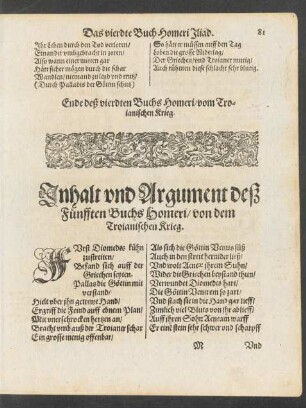 Das vierdte Buch Homeri Iliad. 81
Ihr Leben durch den Tod verloren/
Einander vmbgebracht in zoren/
Also wann einer mitten gar
Hätt sicher mögen durch die schar
Wandlen/ niemand zu leyd vnd trutz/
(Durch Palladis der Göttin schutz)
So hätte müssen auff den Tag
Loben die grosse Niderlag/
Der Griechen/ vnd Troianer mutig/
Auch rühmen diese schlacht sehr blutig.
Ende deß vierdten Buchs Homeri/ vom Tro-
ianischen Krieg.
Inhalt vnd Argument deß
Fünfften Buchs Homeri/ von dem
Troianischen Krieg.
Fürst Diomedes kühn
zustreiten/
Befand sich auff der
Griechen seyten.
Pallas die Göttin mit
verstand/
Hielt vber jhn getrewe Hand/
Ergriff die Feind auff ebnem Plan/
Mit vnerschrocken hertzen an/
Bracht vmb auß der Troianer schar
Ein grosse menig offenbar/
Als sich die Göttin Venus süß
Auch in den streit hernider ließ/
Vnd wolt Aeneæ jhrem Suhn/
Wider die Griechen beystand thun/
Verwundet Diomedes hart/
Die Göttin Venerem so zart/
Vnd stach sie in die Hand gar tieff/
Zimlich viel Bluts von jhr ablieff/
Auff ihren Sohn Aeneam warff
Er eine stein sehr schwer vnd scharpff
M Vnd